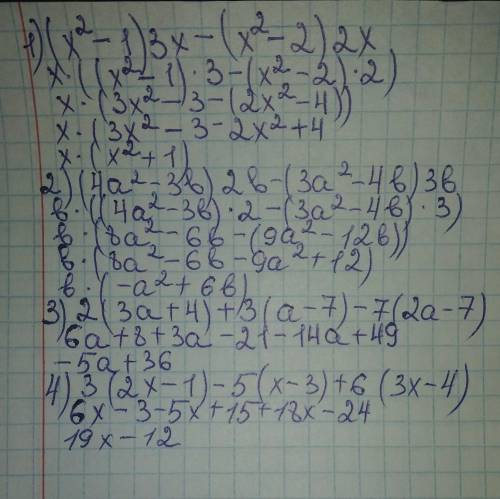 1) (x² - 1) 3x - (x² - 2) 2x
x · ((x² - 1) · 3 - (x² - 2) · 2)
x · (3x² - 3 - (2x² - 4))
x · (3x² - 3 - 2x² + 4
x · (x² + 1)
2) (4a² - 3b) 2b - (3a² - 4b) 3b
b · ((4a² - 3b) · 2 - (3a² - 4b) · 3)
b · (8a² - 6b - (9a² - 12b))
b · (8a² - 6b - 9a² + 12)
b · (-a² + 6b)
3) 2(3a + 4) + 3(a - 7) - 7(2a - 7)
6a + 8 + 3a - 21 - 14a + 49
-5a + 36
4) 3(2x - 1) - 5(x - 3) + 6(3x - 4)
6x - 3 - 5x + 15 + 18x - 24
19x - 12